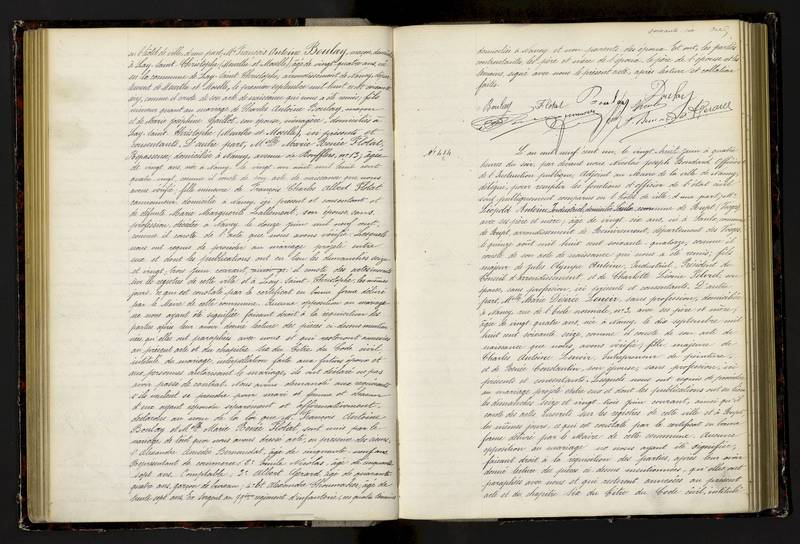 en l'hôtel de ville, d'une part, Mr François Antoine Boulay, maçon, domicilié
à Lay-Saint-Christophe (Meurthe et Moselle), âgé de vingt-quatre ans, né
en la commune de Lay-Saint-Christophe, arrondissement de Nancy, département
de Meurthe et Moselle, le premier septembre mil huit cent
comme il conste de son acte de naissance qui nous a été remis; fils
mineur quant au mariage de Charles Antoine Boulay, maçon
et de Marie Joséphine son épouse, ménagère, domiciliés à
Lay-Saint-Christophe (Meurthe et Moselle), ici présents et
consentants. D'autre part, Mlle Marie Renée Flotat,
Repasseuse, domiciliée à Nancy, avenue de Boufflers, no 13; âgée
de vingt ans, née à Nancy le vingt un août mil huit cent
quatre vingt, comme il conste de son acte de naissance que nous
avons vérifié; fille mineure de François Charles Albert Flotat
domicilié à Nancy, ici présent et consentant et
de défunte Marie Marguerite Lallemant, son épouse, sans
profession, décédée à Nancy le douze juin mil neuf cent,
comme il conste de l'acte que nous avons vérifié. Lesquels
nous ont requis de procéder au mariage projeté entre
eux et dont les publications ont eu lieu les dimanches seize
et vingt trois juin courant, il conste des actes inscrits
sur les registres de cette ville et à Lay-Saint-Christophe, les mêmes
jours, ce qui est constaté par le certificat en bonne forme délivré
par le Maire de cette commune. Aucune opposition au mariage
ne nous ayant été signifiée, faisant droit à la réquisition des
parties, après leur avoir donné lecture des pièces ci-dessus mention-
nées, qu'elles ont paraphées avec nous et qui resteront annexées
au présent acte et du chapitre six du titre du Code civil,
intitulé du mariage, interpellation faite aux futurs époux et
aux personnes autorisant le mariage, ils ont déclaré ne pas
avoir passé de contrat. Nous avons demandé aux requérants
s'ils veulent se prendre pour mari et femme et chacun
d'eux ayant répondu séparément et affirmativement
déclarons au nom de la loi que Mr François Antoine
Boulay et Mlle Marie Renée Flotat, sont unis par le
mariage. De tout quoi nous avons dressé acte, en présence des sieurs
1° Alexandre Amédée âgé de cinquante neuf ans
Représentant de commerce; 2° Emile Nicolas, âgé de cinquante
sept ans, Comptable; 3° Albert Gérard, âgé de quarante
quatre ans, garçon de bureau; 4° et Alexandre âgé de
trente sept ans, Ex Sergent au régiment d'infanterie, ces quatre témoins
soixante
domiciliés à Nancy et non parents des époux. Et ont, les parties
contractantes, les père et mère de l'époux, le père de l'épouse et les
témoins, signé avec nous le présent acte, après lecture et collation
faite.
Boulay Flotat Boulay
No 414
L'an mil neuf cent un, le vingt huit juin à quatre
heures du soir, par devant nous Nicolas Joseph Boudard, Officier
de l'Instruction publique, Adjoint au Maire de la ville de Nancy,
délégué pour remplir les fonctions d'officier de l'état civil
sont publiquement comparus en l'hôtel de ville, d'une part, Mr
Léopold Antoine, industriel, domicilié commune de Vosges,
avec ses père et mère; âgé de vingt six ans, né à
arrondissement de Remiremont, département des Vosges,
le quinze août mil huit cent soixante quatorze, comme il
conste de son acte de naissance qui nous a été remis; fils
majeur de Jules Olympe Antoine, Industriel, Président du
Conseil d'arrondissement et de Charlotte Léonie son
épouse, sans profession, ici présents et consentants. D'autre
part, Mlle Marie Désirée Lenoir, sans profession, domiciliée
à Nancy, rue de l'Ecole normale, no 3, avec ses père et mère;
âgée de vingt quatre ans, née à Nancy, le dix septembre mil
huit cent soixante seize, comme il conste de son acte de
naissance que nous avons vérifié; fille majeure de
Charles Antoine Lenoir, Entrepreneur de peinture,
et de Renée Constantin, son épouse, sans profession, ici
présents et consentants. Lesquels nous ont requis de procéder
au mariage projeté entre eux et dont les publications ont eu lieu
les dimanches seize et vingt trois juin courant, ainsi qu'il
conste des actes inscrits sur les registres de cette ville et à
les mêmes jours, ce qui est constaté par le certificat en bonne
forme délivré par le Maire de cette commune. Aucune
opposition au mariage ne nous ayant été signifiée,
faisant droit à la réquisition des parties, après leur avoir
donné lecture des pièces ci-dessus mentionnées, qu'elles ont
paraphées avec nous et qui resteront annexées au présent
acte et du chapitre six du titre du Code civil, intitulé